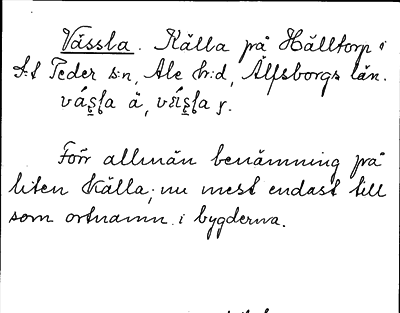 Vässla. Källa på Hälltorp i
S:t Peder s:n, Ale h:d, Älfsborgs län.
Förr allmän benämning på
liten källa; nu mest endast till
som ortnamn i bygderna.